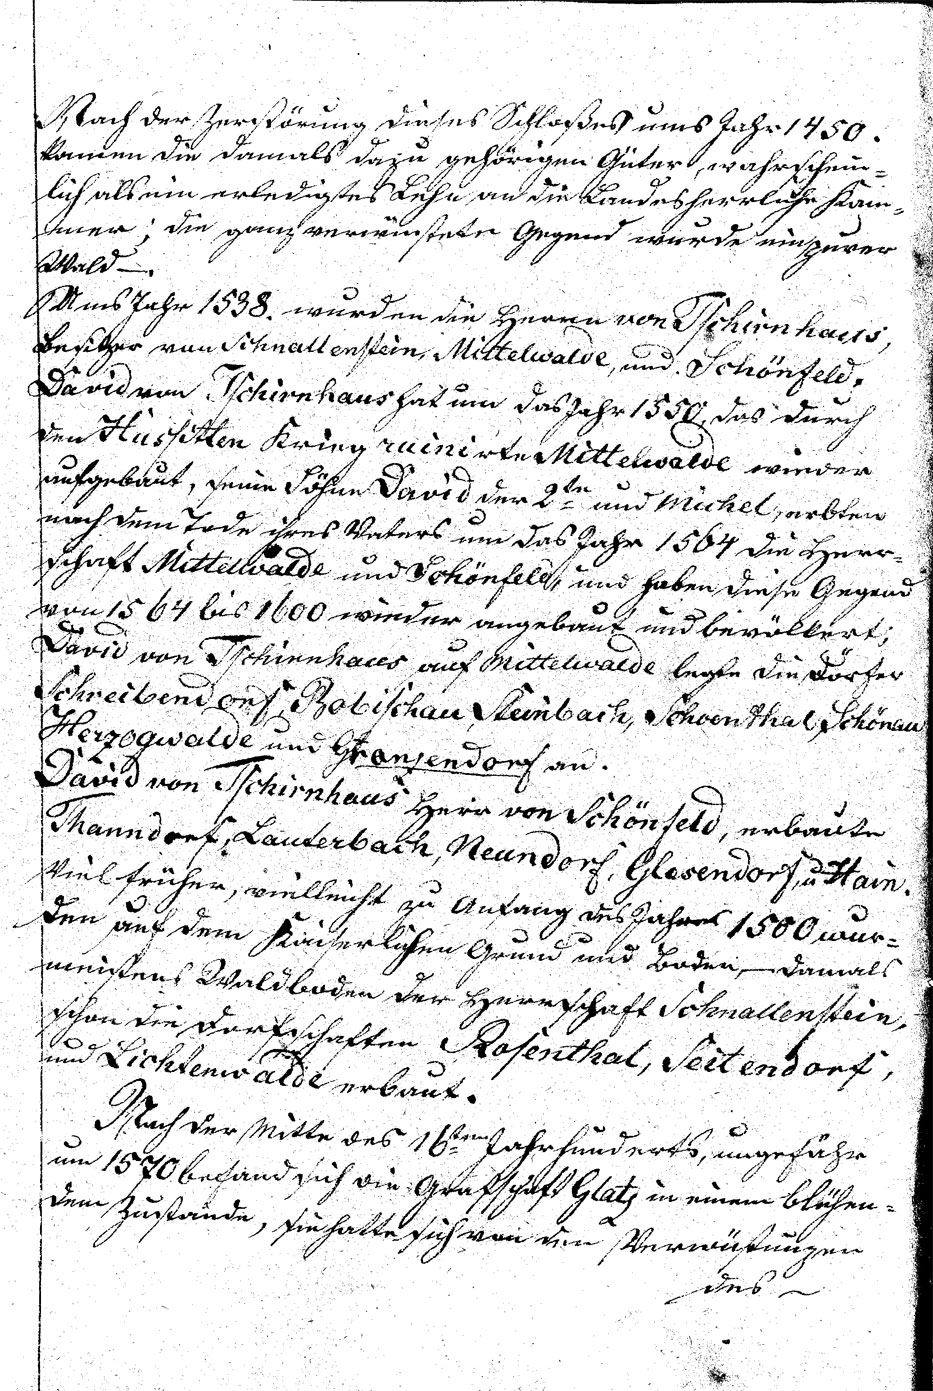 Nach der Zerstörung dieses Schloßes ums Jahr 1450.
kamen die damals dazu gehörigen Güter, wahrschein=
lich als ein erledigtes Lehn an die Landesherrliche Kam=
mer; die ganz verwüstete Gegend wurde ein purer
Wald —.
Ums Jahr 1538. wurden die Herrn von Tschirnhaus,
Besitzer von Schnallenstein, Mittelwalde, und Schönfeld.
David von Tschirnhaus hat um das Jahr 1550, das durch
den Hussitten Krieg ruinirte Mittelwalde wieder
aufgebaut, seine Söhne David der 2te und Michel, erbten
nach dem Tode ihres Vaters um das Jahr 1564 die Herr=
schaft Mittelwalde und Schönfeld, und haben diese Gegend
von 1564 bis 1600 wieder angebaut und bevölkert;
David von Tschirnhaus auf Mittelwalde legte die Dörfer
Schreibendorf, Bobischau, Steinbach, Schoenthal, Schönau
Herzogwalde und Gransendorf an.
David von Tschirnhaus Herr von Schönfeld, erbaute
Thanndorf, Lauterbach, Neundorf, Glasendorf, u Hain.
Viel früher, vielleicht zu Anfang des Jahres 1500 wur=
den auf dem Kaiserlichen Grund und Boden, — damals
meistens Waldboden der Herrschaft Schnallenstein,
schon die Dorfschaften Rosenthal, Seitendorf,
und Lichtenwalde erbaut.
Nach der Mitte des 16ten Jahrhunderts, ungefähr
um 1570 befand sich die Grafschaft Glatz in einem blühen=
dem Zustande, sie hatte sich von den Verwüstungen
des ~